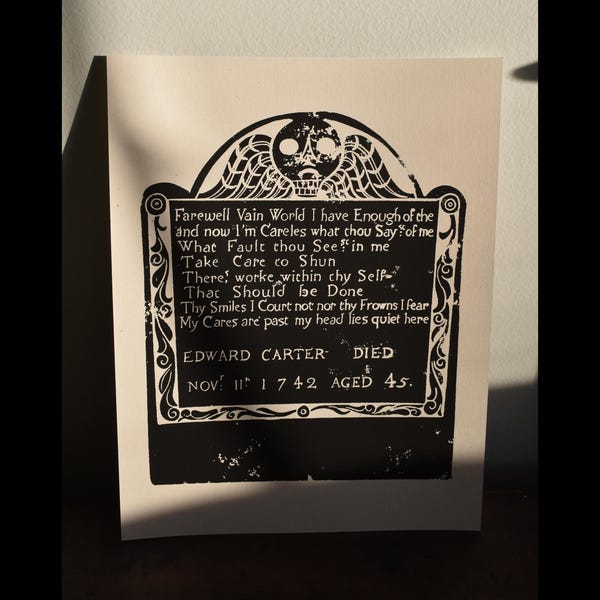 Farewell Vain World I have Enough of the
and now I'm Careles what thou Say.st of me
What Fault thou See.st in me
Take Care to Shun
There,s worke within thy Self
That Should be Done
Thy Smiles I Court not nor thy Frowns I fear
My Cares are past my head lies quiet here
EDWARD CARTER DIED
NOV.r 11th 1742 AGED 45.